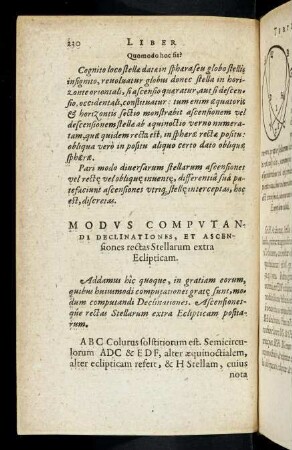 230 LIBER
Quomodo hoc fit?
Cognito loco stellæ data in sphæra seu globo stellis
insignito, reuoluatur globus donec stella in hori-
zonte orientali, si ascensio quæratur, aut si descen-
sio, occidentali, constituatur: tum enim æquatoris
& horizontis sectio monstrabit ascensionem vel
descensionem stellæ ab æquinoctio verno numera-
tam, quæ quidem recta est, in sphæræ recta positu:
obliqua verò in positu aliquo certo dato obliquæ
sphæræ.
Pari modo diuersarum stellarum ascensiones
vel rectæ vel obliquæ, inuentæ, differentia sua pa-
tefaciunt ascensiones vtriq́; stellis interceptas, hoc
est, discretas.
MODVS COMPVTAN-
DI DECLINATIONES, ET ASCEN-
siones rectas Stellarum extra
Eclipticam.
Addamus hîc quoque, in gratiam eorum,
quibus huiusmodi computationes gratæ sunt, mo-
dum computandi Declinationes, Ascensiones-
que rectas Stellarum extra Eclipticam posita-
rum.
ABC Colurus solstitiorum est. Semicircu-
lorum ADC & EDF, alter æquinoctialem,
alter eclipticam refert, & H Stellam, cuius
nota